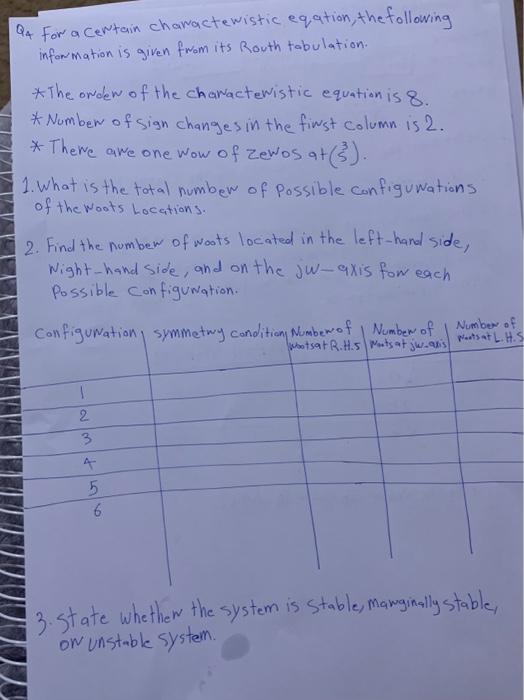 Q4 For a certain characteristic eqation, the following
information is given from its Routh tabulation.
* The order of the characteristic equation is 8.
* Number of sign changes in the first column is 2.
* There are one row of zeros at (s³).
1. What is the total number of possible configurations
of the roots Locations.
2. Find the number of roots located in the left-hand side,
right-hand side, and on the jw-axis for each
possible configuration.
Configuration symmetry condition Number of roots at R.H.S Number of roots at jw-axis Number of roots at L.H.S
1
2
3
4
5
6
3. State whether the system is stable, marginally stable,
or unstable system.